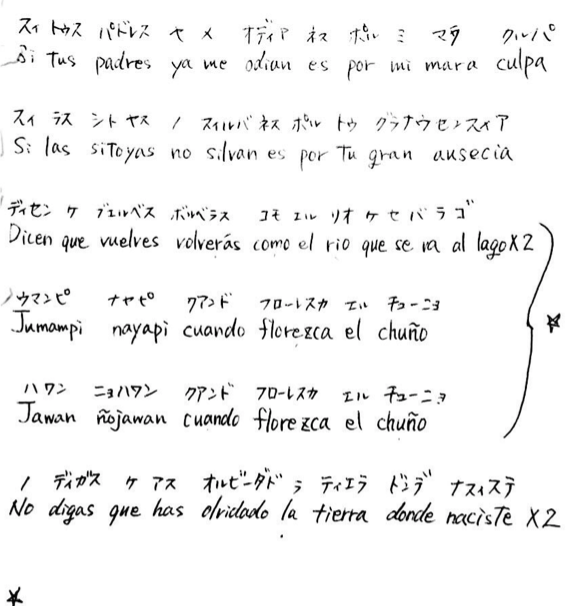 スィ トゥス パドレス ヤ メ オディア ネス ポル ミ マラ クルパ
Si tus padres ya me odian es por mi mara culpa
スィ ラス シトヤス ノ スィルバ ネス ポル トゥ グラナウセンスィア
Si las sitoyas no silvan es por Tu gran ausecia
ディセン ケ ブエルベス ボルベラス コモ エル リオ ケ セ バ ラゴ
Dicen que vuelves volverás como el rio que se va al lago X2
ウマンピ ナヤピ クアンド フローレスカ エル チューニョ
Jumampi nayapi cuando florezca el chuño
ハワン ニョハワン クアンド フローレスカ エル チューニョ
Jawan ñojawan cuando florezca el chuño
ノ ディガス ケ アス オルビーダド ラ ティエラ ドンデ ナスィステ
No digas que has olvidado la tierra donde naciste X2